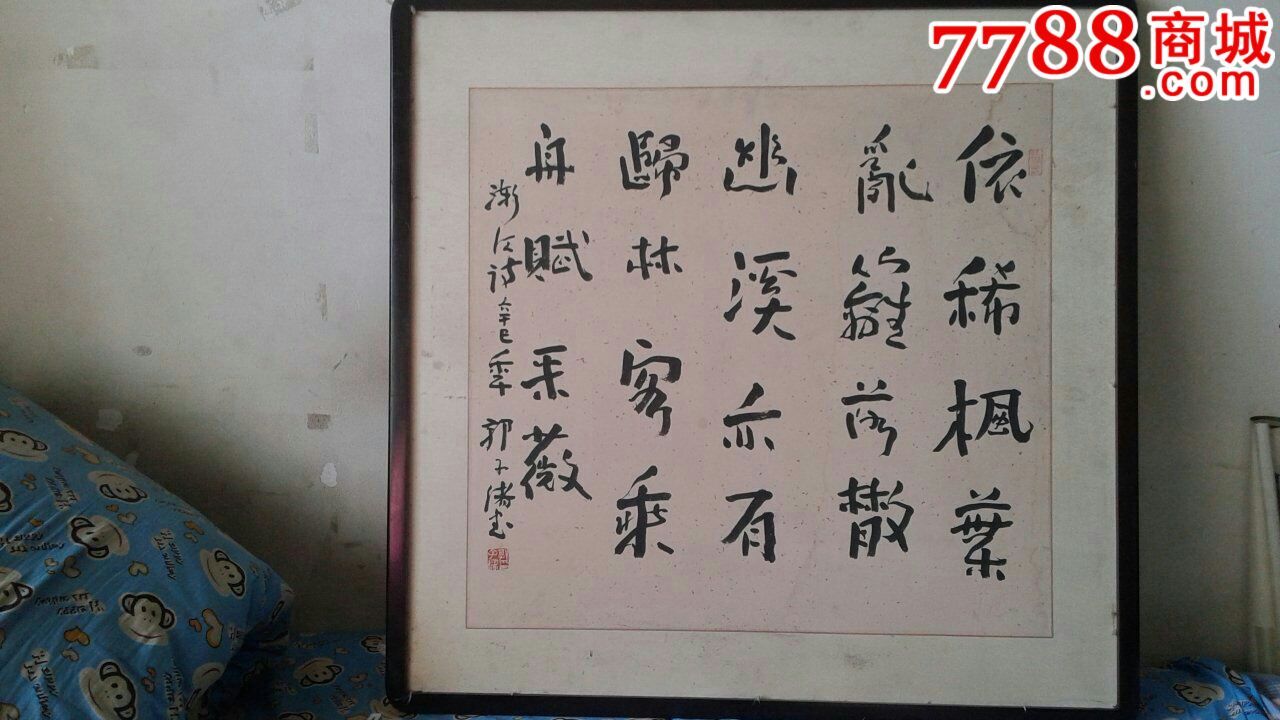 7788商城
.com
依稀楓葉
亂籬落散
幽溪亦有
歸林客乘
舟賦采薇
漸江詩辛巳年郭子緒书